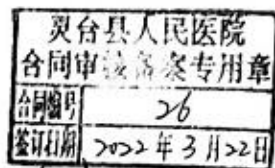 灵台县人民医院
合同审核备案专用章
合同编号 26
签订日期 2022年3月22日